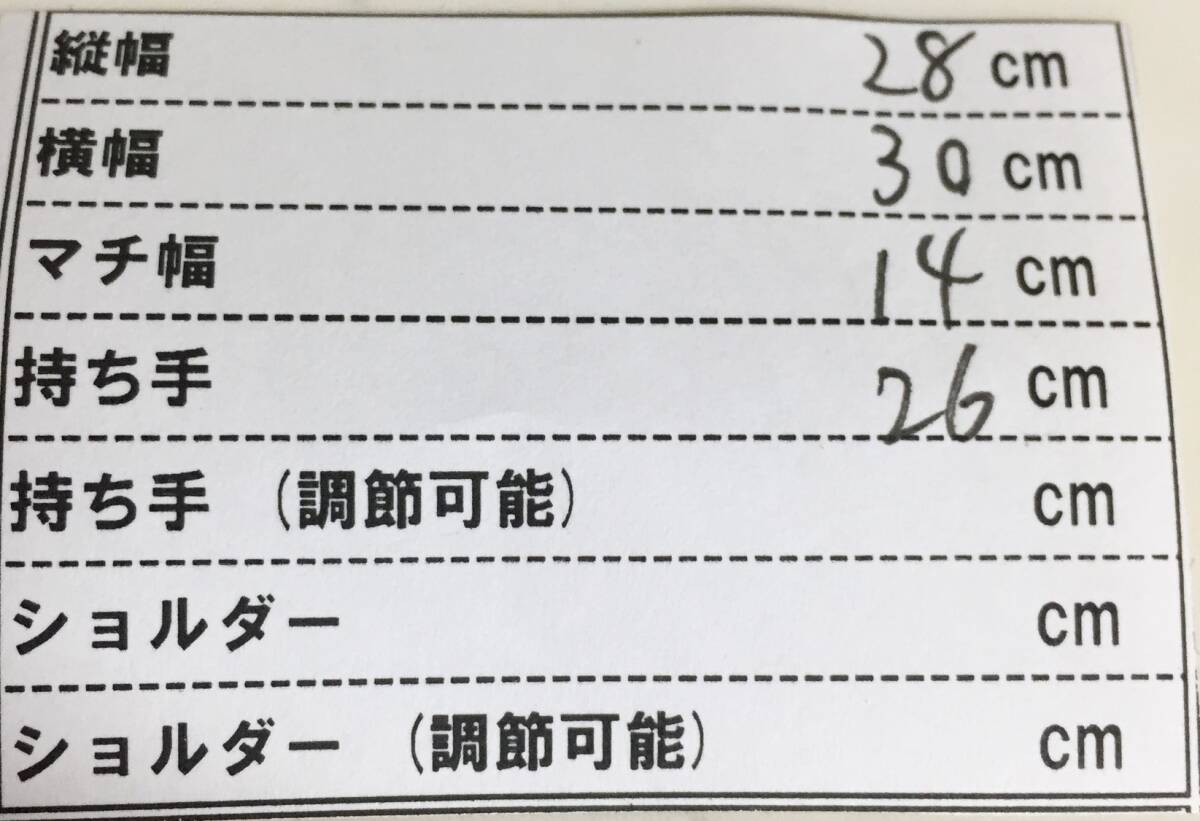 縦幅 28 cm
横幅 30 cm
マチ幅 14 cm
持ち手 26 cm
持ち手 (調節可能) cm
ショルダー cm
ショルダー (調節可能) cm